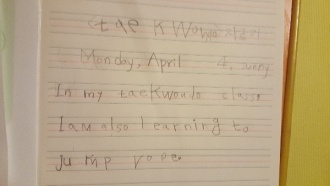 tae KWondo
Monday, April 4, sunny
In my taekwondo class
I am also learning to
jump rope